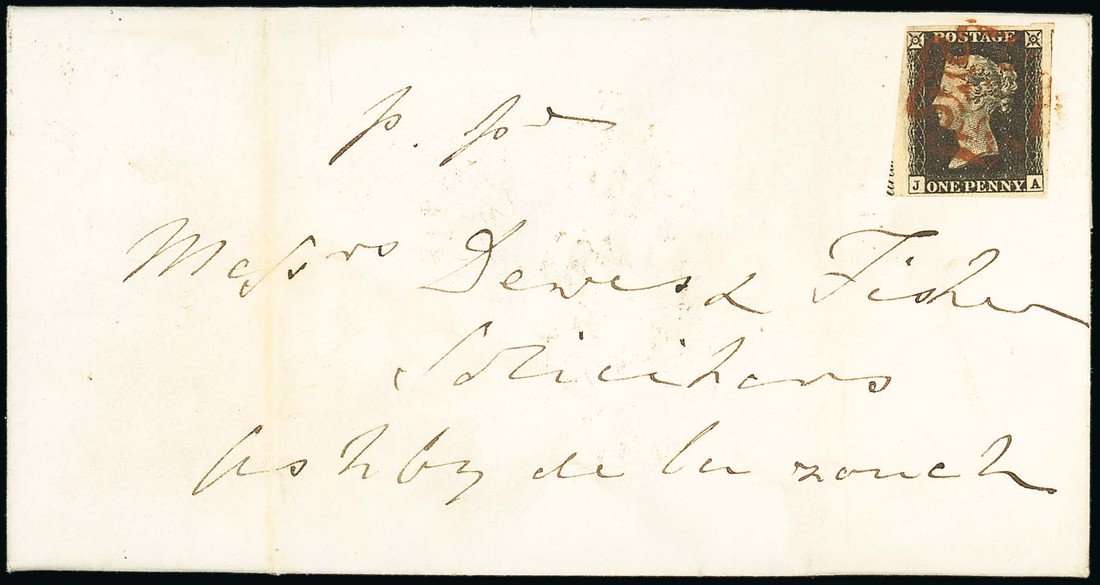 POSTAGE
J ONE PENNY A
p. pd
Messrs Dewes & Fisher
Solicitors
Ashby de la zouch